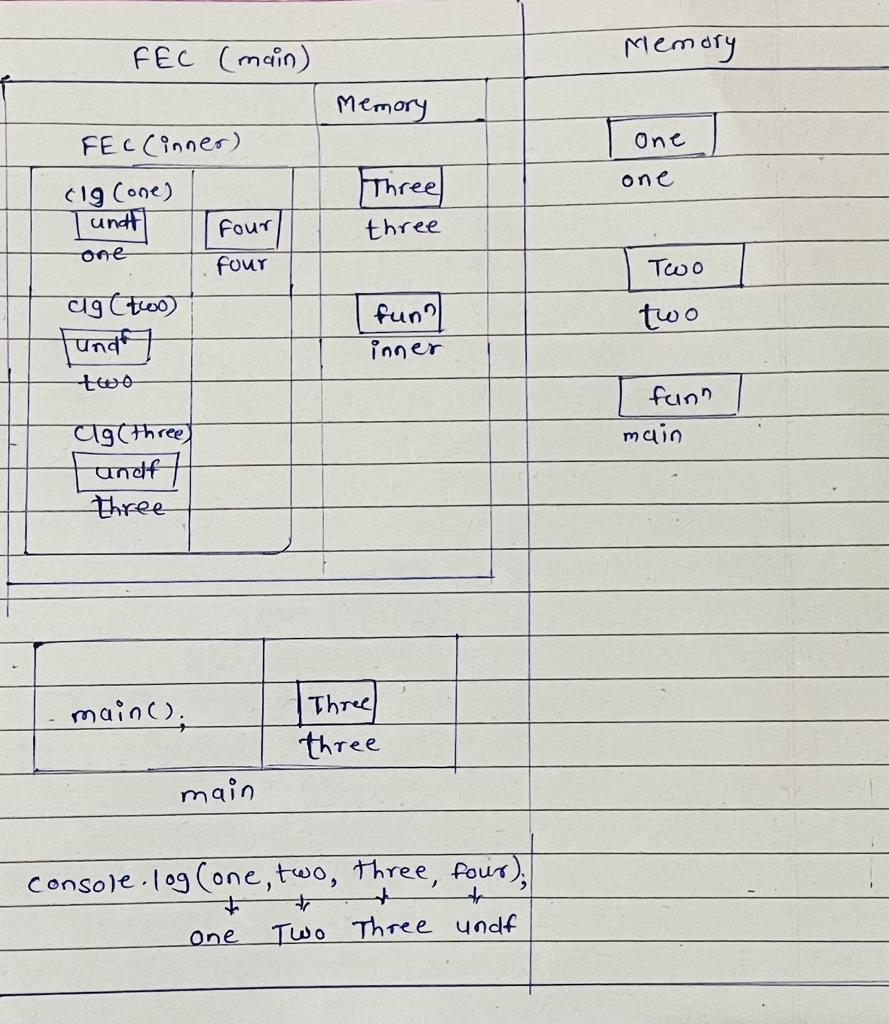 FEC (main)
Memory
FEC (inner)
clg(one)
undf
one
Four
four
clg(two)
undf
two
clg(three)
undf
three
Memory
Three
three
funn
inner
One
one
Two
two
funn
main
main();
Three
three
main
console.log(one, two, three, four);
One Two Three undf